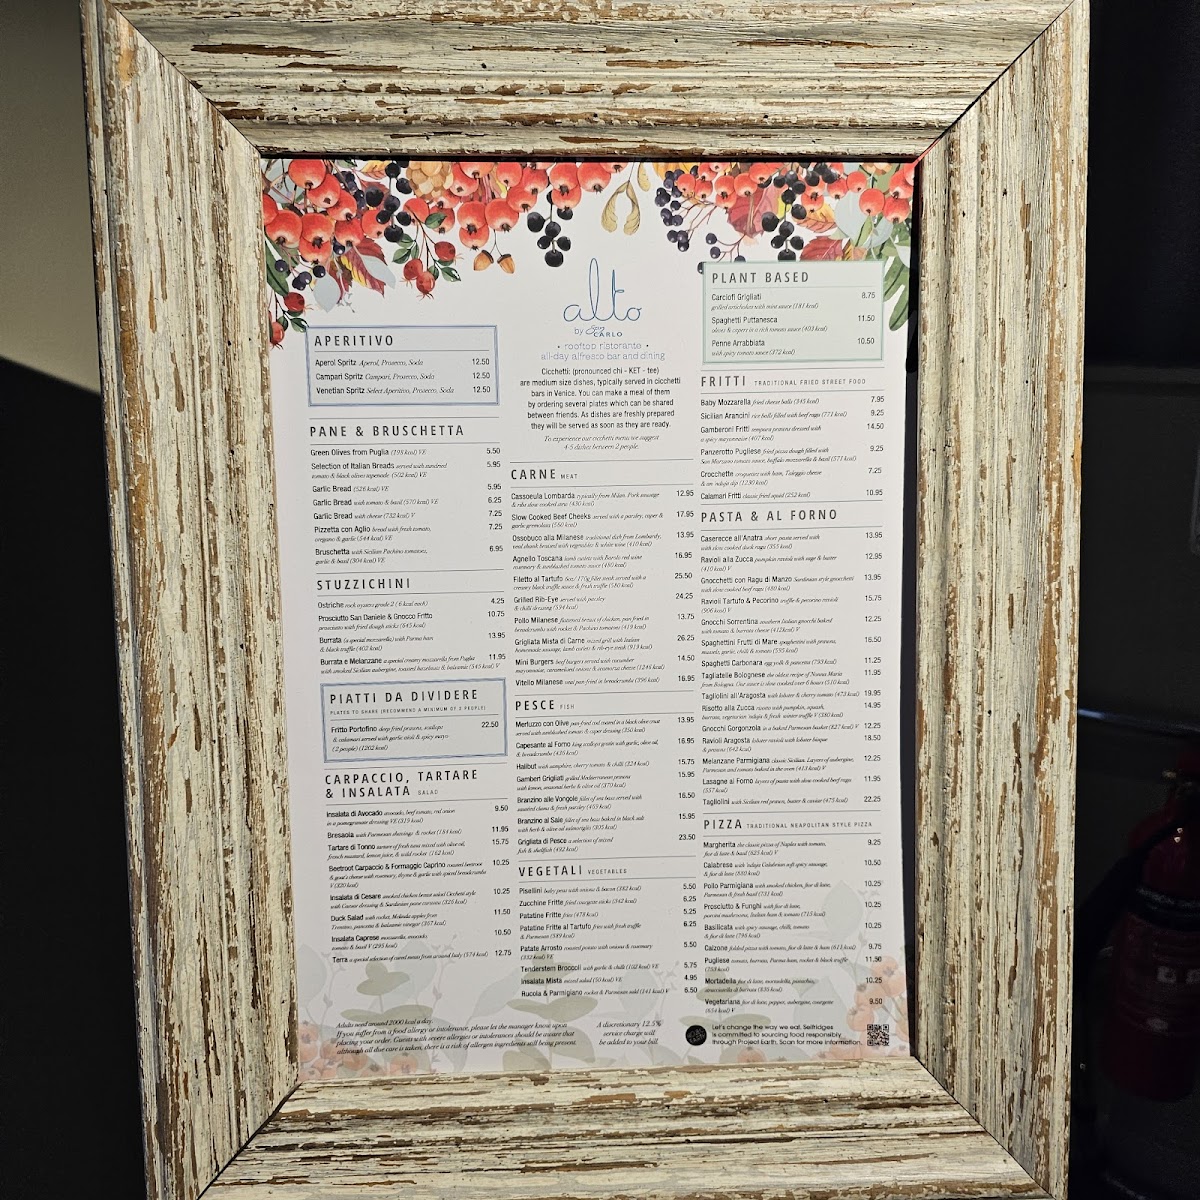 APERITIVO
Aperol Spritz Aperol, Prosecco, Soda 12.50
Campari Spritz Campari, Prosecco, Soda 12.50
Venetian Spritz Select Aperitivo, Prosecco, Soda 12.50
PANE & BRUSCHETTA
Green Olives from Puglia (198 kcal) VE 5.50
Selection of Italian Breads served with sundried 5.95
tomato & black olives tapenade (502 kcal) VE
Garlic Bread (526 kcal) VE 5.95
Garlic Bread with tomato & basil (570 kcal) VE 6.25
Garlic Bread with cheese (732 kcal) V 7.25
Pizzetta con Aglio bread with fresh tomato, 7.25
oregano & garlic (544 kcal) VE
Bruschetta with Sicilian Pachino tomatoes, 6.95
garlic & basil (304 kcal) VE
STUZZICHINI
Ostriche rock oysters grade 2 (6 kcal each) 4.25
Prosciutto San Daniele & Gnocco Fritto 10.75
prosciutto with fried dough sticks (645 kcal)
Burrata (a special mozzarella) with Parma ham 13.95
& black truffle (402 kcal)
Burrata e Melanzane a special creamy mozzarella from Puglia 11.95
with smoked Sicilian aubergine, toasted hazelnuts & balsamic (545 kcal) V
PIATTI DA DIVIDERE
PLATES TO SHARE (RECOMMEND A MINIMUM OF 2 PEOPLE)
Fritto Portofino deep fried prawns, scallops 22.50
& calamari served with garlic aioli & spicy mayo
(2 people) (1202 kcal)
CARPACCIO, TARTARE
& INSALATA SALAD
Insalata di Avocado avocado, beef tomato, red onion 9.50
in a pomegranate dressing VE (319 kcal)
Bresaola with Parmesan shavings & rocket (184 kcal) 11.95
Tartare di Tonno tartare of fresh tuna mixed with olive oil, 15.75
french mustard, lemon juice, & wild rocket (162 kcal)
Beetroot Carpaccio & Formaggio Caprino roasted beetroot 10.25
& goat's cheese with rosemary, thyme & garlic with spiced breadcrumbs
V (320 kcal)
Insalata di Cesare smoked chicken breast salad Cicchetti style 10.25
with Caesar dressing & Sardinian pane carasau (326 kcal)
Duck Salad with rocket, Melinda apples from 11.50
Trentino, pancetta & balsamic vinegar (267 kcal)
Insalata Caprese mozzarella, avocado, 10.50
tomato & basil V (295 kcal)
Terra a special selection of cured meats from around Italy (574 kcal) 12.75
Adults need around 2000 kcal a day.
If you suffer from a food allergy or intolerance, please let the manager know upon
placing your order. Guests with severe allergies or intolerances should be aware that
although all due care is taken, there is a risk of allergen ingredients still being present.
alto
by San CARLO
• rooftop ristorante •
all-day alfresco bar and dining
Cicchetti: (pronounced chi - KET - tee)
are medium size dishes, typically served in cicchetti
bars in Venice. You can make a meal of them
by ordering several plates which can be shared
between friends. As dishes are freshly prepared
they will be served as soon as they are ready.
To experience our cicchetti menu we suggest
4-5 dishes between 2 people.
CARNE MEAT
Cassoeula Lombarda typically from Milan. Pork sausage 12.95
& ribs slow cooked stew (430 kcal)
Slow Cooked Beef Cheeks served with a parsley, caper & 17.95
garlic gremolata (560 kcal)
Ossobuco alla Milanese traditional dish from Lombardy, 13.95
veal shank braised with vegetables & white wine (410 kcal)
Agnello Toscana lamb cutlets with Barolo red wine 16.95
rosemary & sunblushed tomato sauce (480 kcal)
Filetto al Tartufo 6oz/170g Fillet steak served with a 25.50
creamy black truffle sauce & fresh truffle (580 kcal)
Grilled Rib-Eye served with parsley 24.25
& chilli dressing (594 kcal)
Pollo Milanese flattened breast of chicken, pan fried in 13.75
breadcrumbs with rocket & Pachino tomatoes (419 kcal)
Grigliata Mista di Carne mixed grill with Italian 26.25
homemade sausage, lamb cutlets & rib-eye steak (919 kcal)
Mini Burgers beef burgers served with cucumber 14.50
mayonnaise, caramelised onions & scamorza cheese (1246 kcal)
Vitello Milanese veal pan-fried in breadcrumbs (396 kcal) 16.95
PESCE FISH
Merluzzo con Olive pan fried cod coated in a black olive crust 13.95
served with sunblushed tomato & caper dressing (350 kcal)
Capesante al Forno king scallops gratin with garlic, olive oil, 16.95
& breadcrumbs (435 kcal)
Halibut with samphire, cherry tomato & chilli (224 kcal) 15.75
Gamberi Grigliati grilled Mediterranean prawns 15.95
with lemon, seasonal herbs & olive oil (370 kcal)
Branzino alle Vongole fillet of sea bass served with 16.50
sautéed clams & fresh parsley (403 kcal)
Branzino al Sale fillet of sea bass baked in black salt 15.95
with herb & olive oil salmoriglio (305 kcal)
Grigliata di Pesce a selection of mixed 23.50
fish & shellfish (492 kcal)
VEGETALI VEGETABLES
Pisellini baby peas with onions & bacon (382 kcal) 5.50
Zucchine Fritte fried courgette sticks (342 kcal) 6.25
Patatine Fritte fries (478 kcal) 5.25
Patatine Fritte al Tartufo fries with fresh truffle 6.25
& Parmesan (589 kcal)
Patate Arrosto roasted potato with onions & rosemary 5.50
(332 kcal) VE
Tenderstem Broccoli with garlic & chilli (102 kcal) VE 5.75
Insalata Mista mixed salad (50 kcal) VE 4.95
Rucola & Parmigiano rocket & Parmesan salad (141 kcal) V 6.50
A discretionary 12.5%
service charge will
be added to your bill.
PLANT BASED
Carciofi Grigliati 8.75
grilled artichokes with mint sauce (181 kcal)
Spaghetti Puttanesca 11.50
olives & capers in a rich tomato sauce (403 kcal)
Penne Arrabbiata 10.50
with spicy tomato sauce (372 kcal)
FRITTI TRADITIONAL FRIED STREET FOOD
Baby Mozzarella fried cheese balls (345 kcal) 7.95
Sicilian Arancini rice balls filled with beef ragu (771 kcal) 9.25
Gamberoni Fritti tempura prawns dressed with 14.50
a spicy mayonnaise (407 kcal)
Panzerotto Pugliese fried pizza dough filled with 9.25
San Marzano tomato sauce, buffalo mozzarella & basil (571 kcal)
Crocchette croquettes with ham, Taleggio cheese 7.25
& an 'nduja dip (1230 kcal)
Calamari Fritti classic fried squid (252 kcal) 10.95
PASTA & AL FORNO
Caserecce all'Anatra short pasta served with 13.95
with slow cooked duck ragu (355 kcal)
Ravioli alla Zucca pumpkin ravioli with sage & butter 12.95
(410 kcal) V
Gnocchetti con Ragu di Manzo Sardinian style gnocchetti 13.95
with slow cooked beef ragu (480 kcal)
Ravioli Tartufo & Pecorino truffle & pecorino ravioli 15.75
(906 kcal) V
Gnocchi Sorrentina southern Italian gnocchi baked 12.25
with tomato & burrata cheese (412kcal) V
Spaghettini Frutti di Mare spaghettini with prawns, 16.50
mussels, garlic, chilli & tomato (535 kcal)
Spaghetti Carbonara egg yolk & pancetta (793 kcal) 11.25
Tagliatelle Bolognese the oldest recipe of Nonna Maria 11.95
from Bologna. Our sauce is slow cooked over 6 hours (510 kcal)
Tagliolini all'Aragosta with lobster & cherry tomato (473 kcal) 19.95
Risotto alla Zucca risotto with pumpkin, squash, 14.95
burrata, vegetarian 'nduja & fresh winter truffle V (380 kcal)
Gnocchi Gorgonzola in a baked Parmesan basket (827 kcal) V 12.25
Ravioli Aragosta lobster ravioli with lobster bisque 18.50
& prawns (642 kcal)
Melanzane Parmigiana classic Sicilian. Layers of aubergine, 12.25
Parmesan and tomato baked in the oven (413 kcal) V
Lasagne al Forno layers of pasta with slow cooked beef ragu 11.95
(557 kcal)
Tagliolini with Sicilian red prawn, butter & caviar (475 kcal) 22.25
PIZZA TRADITIONAL NEAPOLITAN STYLE PIZZA
Margherita the classic pizza of Naples with tomato, 9.25
fior di latte & basil (625 kcal) V
Calabrese with 'nduja Calabrian soft spicy sausage, 10.50
fior di latte (832 kcal)
Pollo Parmigiana with smoked chicken, fior di latte, 10.25
Parmesan & fresh basil (731 kcal)
Prosciutto & Funghi with fior di latte, 10.25
porcini mushrooms, Italian ham & tomato (715 kcal)
Basilicata with spicy sausage, chilli, tomato 10.25
& fior di latte (786 kcal)
Calzone folded pizza with tomato, fior di latte & ham (611 kcal) 9.75
Pugliese tomato, burrata, Parma ham, rocket & black truffle 11.50
(758 kcal)
Mortadella fior di latte, mortadella, pistachio, 10.25
stracciatella di burrata (836 kcal)
Vegetariana fior di latte, pepper, aubergine, courgette 9.50
(654 kcal) V
Let's change the way we eat. Selfridges
is committed to sourcing food responsibly
through Project Earth. Scan for more information.